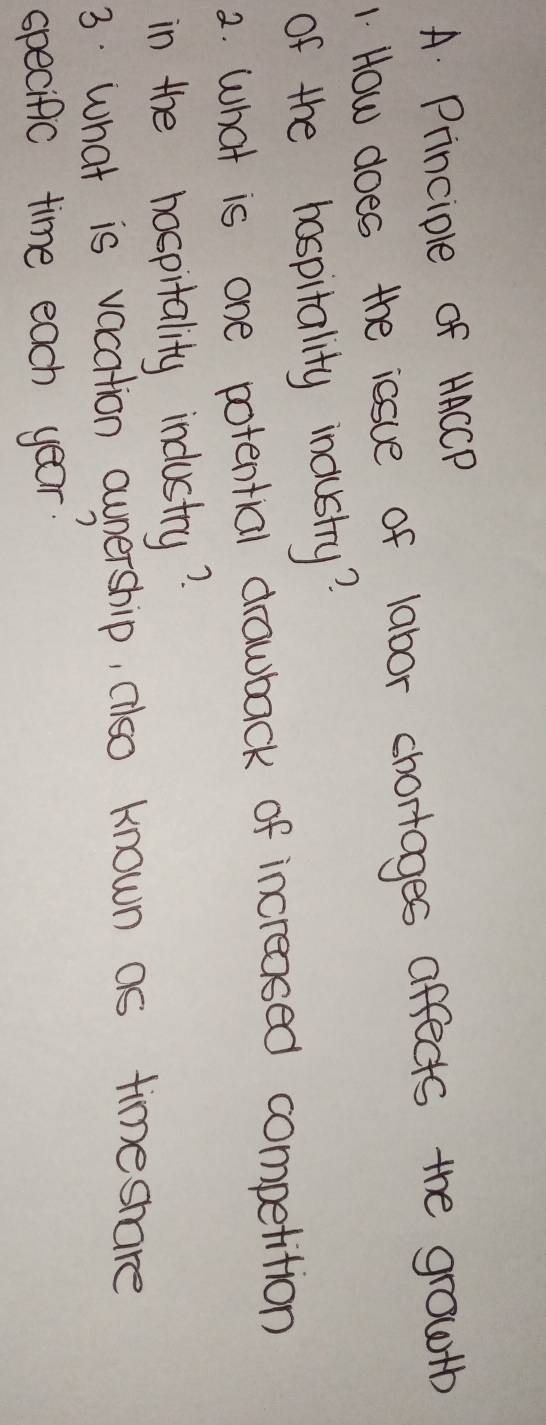 A. Principle of HACCP
1. How does the issue of labor shortages affects the growth
of the hospitality industry?
2. What is one potential drawback of increased competition
in the hospitality industry?
3. What is vacation ownership, also known as timeshare
?
specific time each year.